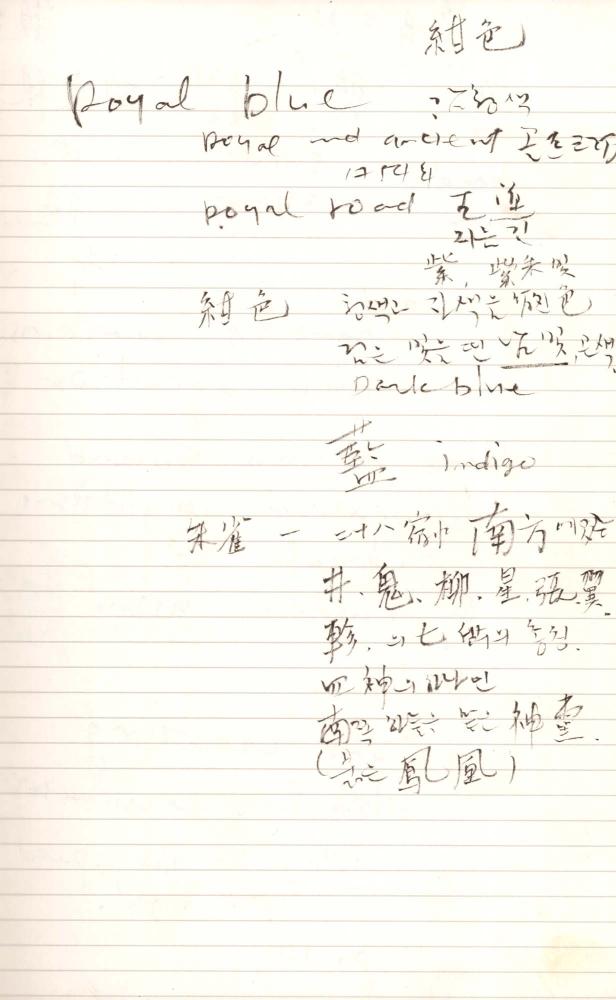 紺色
Royal blue 감청색
Royal and ancient 골프크럽
1754
royal road 王道
紫, 紫朱빛
紺色 청색과 자색을 合한 色
검은 빛을 띤 남빛, 곤색
Dark blue
藍 indigo
朱雀 — 二十八宿中 南方에 있는
井. 鬼. 柳. 星. 張. 翼.
軫. 의 七 의 총칭.
四神의 하나인
南쪽 神靈.
(붉은 鳳凰)